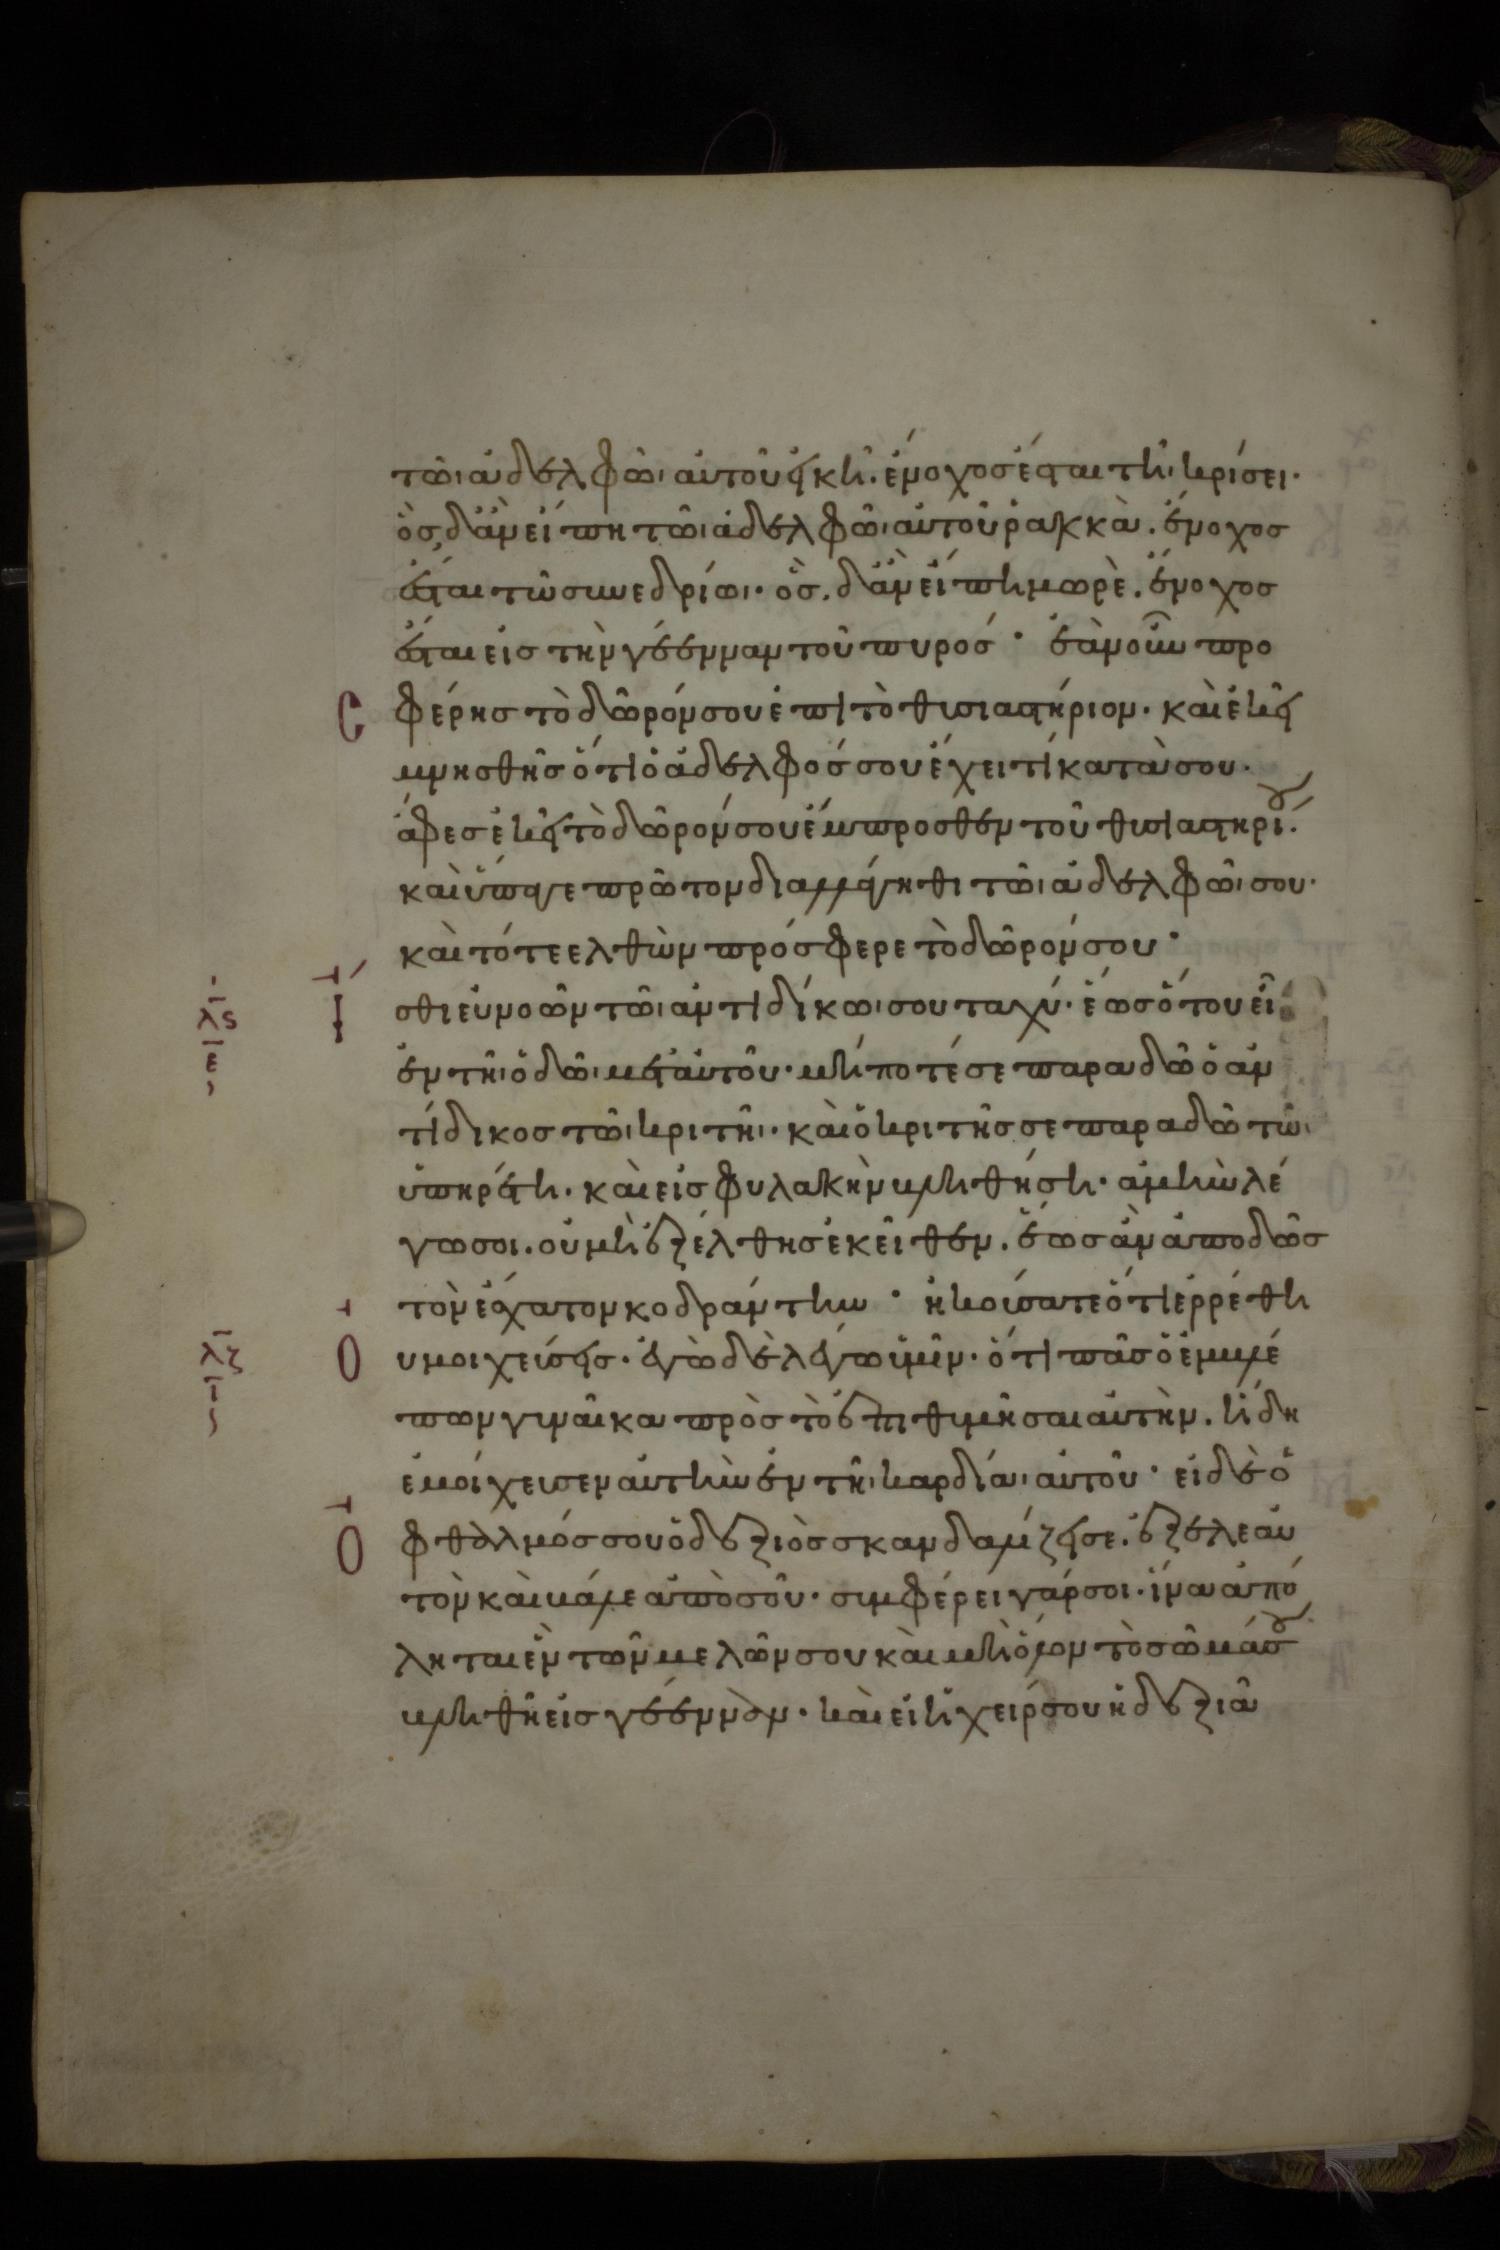 τῶι ἀδελφῶι αὐτοῦ εἰκῆ. ἔνοχος ἔσται τῆι κρίσει·
ὃς δ ἂν εἴπη τῶι ἀδελφῶι αὐτοῦ ῥακκὰ. ἔνοχος
ἔσται τῶ συνεδρίωι· ὃς δ ἂν εἴπη μωρὲ. ἔνοχος
ἔσται εἰς τὴν γέενναν τοῦ πυρός · ἐὰν οὖν προ
C φέρης τὸ δῶρόν σου ἐπὶ τὸ θυσιαστήριον· καὶ ἐκεῖ
μνησθῆς ὅτι ὁ ἀδελφός σου ἔχει τί κατὰ σου·
ἄφες ἐκεῖ τὸ δῶρόν σου ἔμπροσθεν τοῦ θυσιαστηρίου.
καὶ ὕπαγε πρῶτον διαλλάγηθι τῶι ἀδελφῶι σου·
καὶ τότε ελθὼν πρόσφερε τὸ δῶρόν σου ·
λς ε Ι σθι εὐνοῶν τῶι ἀντιδίκωι σου ταχύ· ἕως ὅτου εἶ
ἐν τῆι ὁδῶι μετ αὐτοῦ· μήποτέ σε παραδῶ ὁ ἀν
τίδικος τῶι κριτῆι· καὶ ὁ κριτῆς σε παραδῶ τῶι
ὑπηρέτη· καὶ εἰς φυλακὴν βληθήση· ἀμὴν λέ
γω σοι. οὐ μὴ ἐξέλθης ἐκεῖθεν. ἕως ἂν ἀποδῶς
τὸν ἔσχατον κοδράντην · ἠκούσατε ὅτι ἐρρέθη
λζ ι Ο υ μοιχεύσεις· ἐγὼ δὲ λέγω ὑμῖν· ὅτι πᾶς ὁ ἐμβλέ
πων γυναῖκα πρὸς τὸ ἐπιθυμῆσαι αὐτὴν. ἤδη
ἐμοίχευσεν αὐτὴν ἐν τῆι καρδίαι αὐτοῦ · εἰ δὲ ὁ
Ο φθαλμός σου ὁ δεξιὸς σκανδαλίζει σε. ἔξελε αὐ
τὸν καὶ βάλε ἀπὸ σοῦ· συμφέρει γάρ σοι· ἵνα ἀπό
ληται ἓν τῶν μελῶν σου καὶ μὴ ὅλον τὸ σῶμά σου
βληθῆ εἰς γέενναν· καὶ εἰ ἡ χείρ σου ἡ δεξιὰ